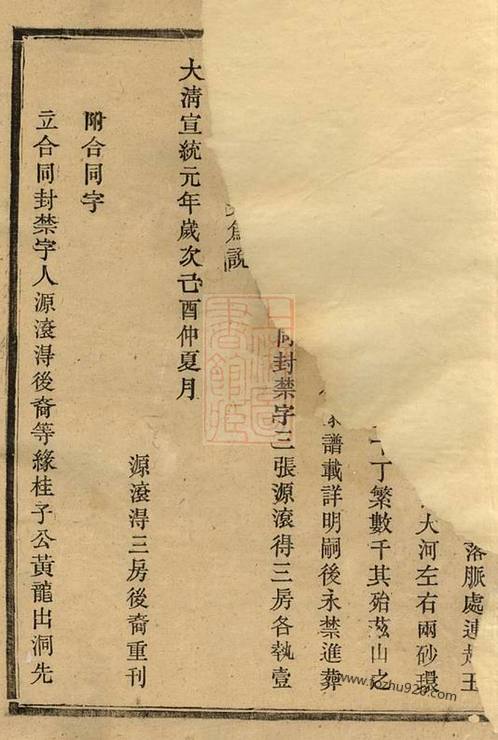 落脈處連
大河左右兩砂環
丁繁數千其殆茲山之
譜載詳明嗣後永禁進葬
同封禁字三張源滾得三房各執壹
說
大清宣統元年歲次己酉仲夏月
源滾得三房後裔重刊
附合同字
立合同封禁字人源滾得後裔等緣桂子公黃龍出洞先
www.jozhu920.com